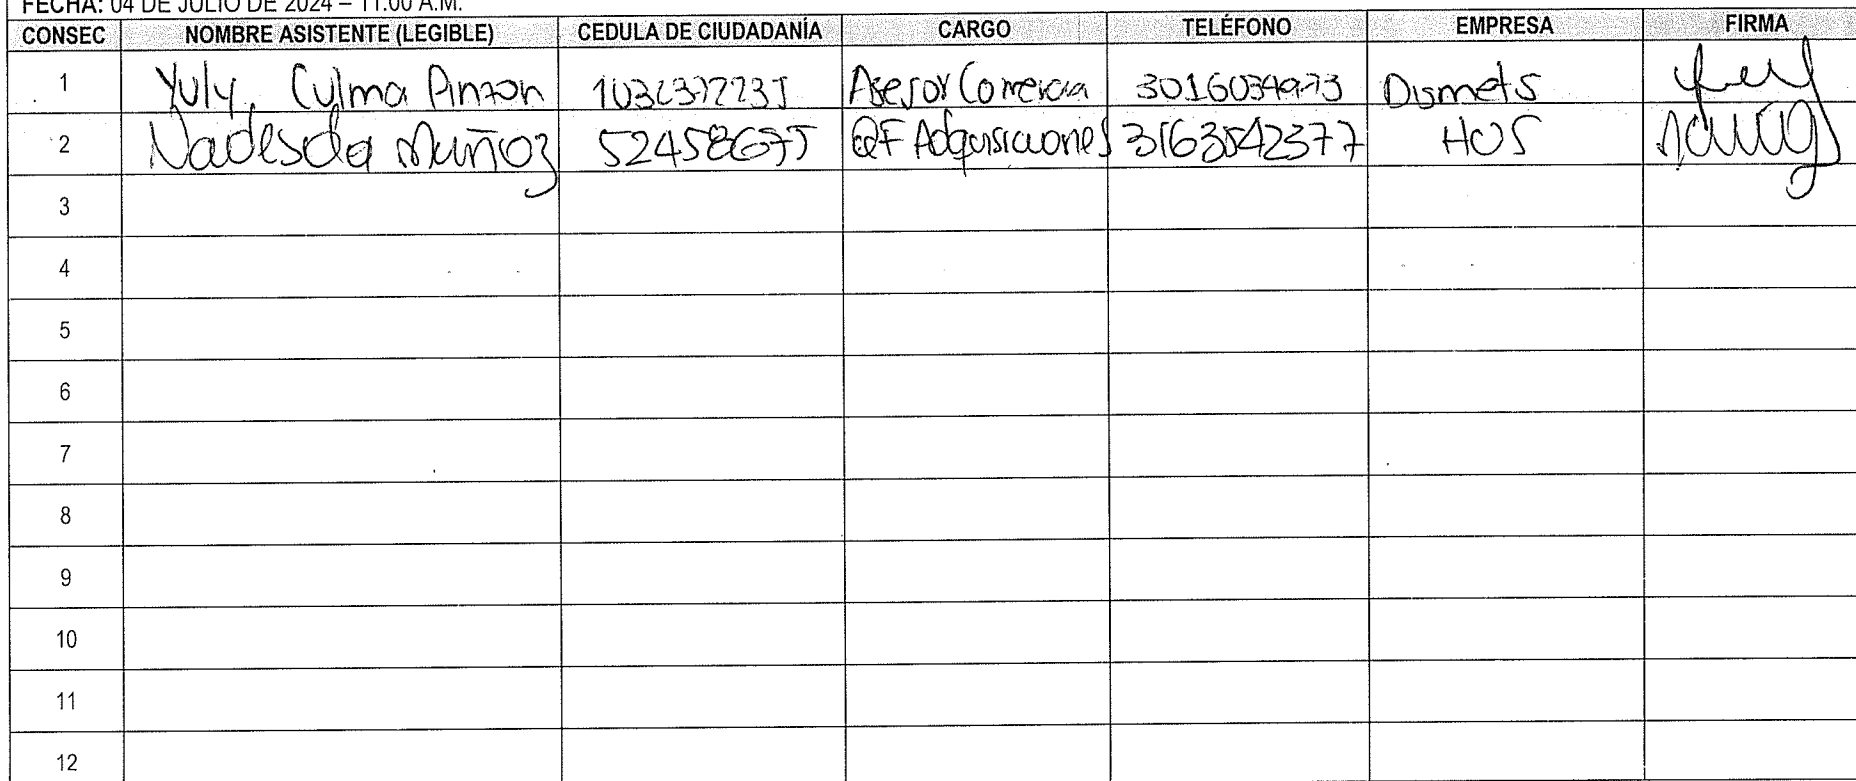 FECHA: 04 DE JULIO DE 2024 – 11:00 A.M.
CONSEC NOMBRE ASISTENTE (LEGIBLE) CEDULA DE CIUDADANÍA CARGO TELÉFONO EMPRESA FIRMA
1 Yuly Culma Pinzon Asesor Comercia Dismets
2 Nadesda Muñoz 52458675 QF Adquisiciones 3163542377 HUS
3
4
5
6
7
8
9
10
11
12